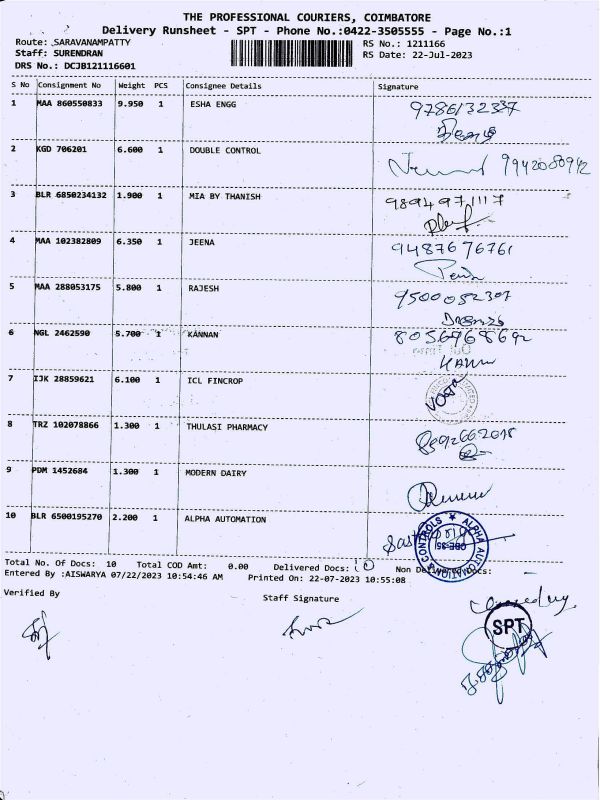 THE PROFESSIONAL COURIERS, COIMBATORE
Delivery Runsheet - SPT - Phone No.:0422-3505555 - Page No.:1
Route: SARAVANAMPATTY RS No.: 1211166
Staff: SURENDRAN RS Date: 22-Jul-2023
DRS No.: DCJB121116601
S No Consignment No Weight PCS Consignee Details Signature
1 MAA 860550833 9.950 1 ESHA ENGG 9786132337
2 KGD 706201 6.600 1 DOUBLE CONTROL 9942080942
3 BLR 6850234132 1.900 1 MIA BY THANISH 9894971117
4 MAA 102382809 6.350 1 JEENA 9487676761
5 MAA 288053175 5.800 1 RAJESH 9500082307
6 NGL 2462590 5.700 1 KANNAN 8056968692
7 IJK 28859621 6.100 1 ICL FINCROP
8 TRZ 102078866 1.300 1 THULASI PHARMACY
9 PDM 1452684 1.300 1 MODERN DAIRY
10 BLR 6500195270 2.200 1 ALPHA AUTOMATION
ALPHA AUTOMATION CONTROLS
CBE-35
Total No. Of Docs: 10 Total COD Amt: 0.00 Delivered Docs: 10 Non Delivered Docs:
Entered By :AISWARYA 07/22/2023 10:54:46 AM Printed On: 22-07-2023 10:55:08
Verified By Staff Signature
SPT